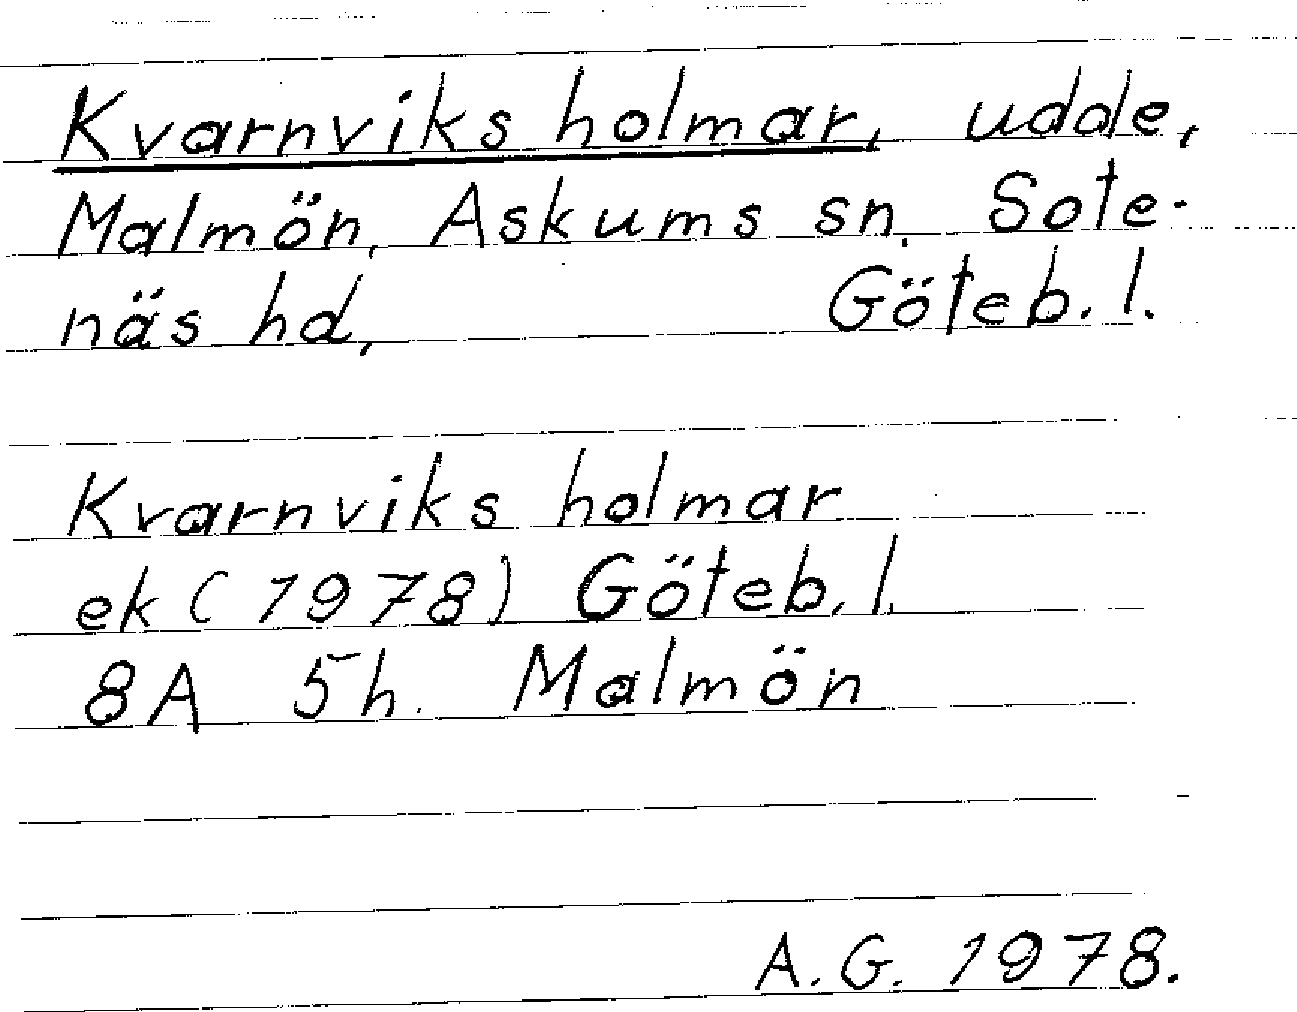 Kvarnviks holmar, udde,
Malmön, Askums sn. Sote-
näs hd, Göteb. l.
Kvarnviks holmar
ek (1978) Göteb. l.
8A 5h. Malmön
A.G. 1978.